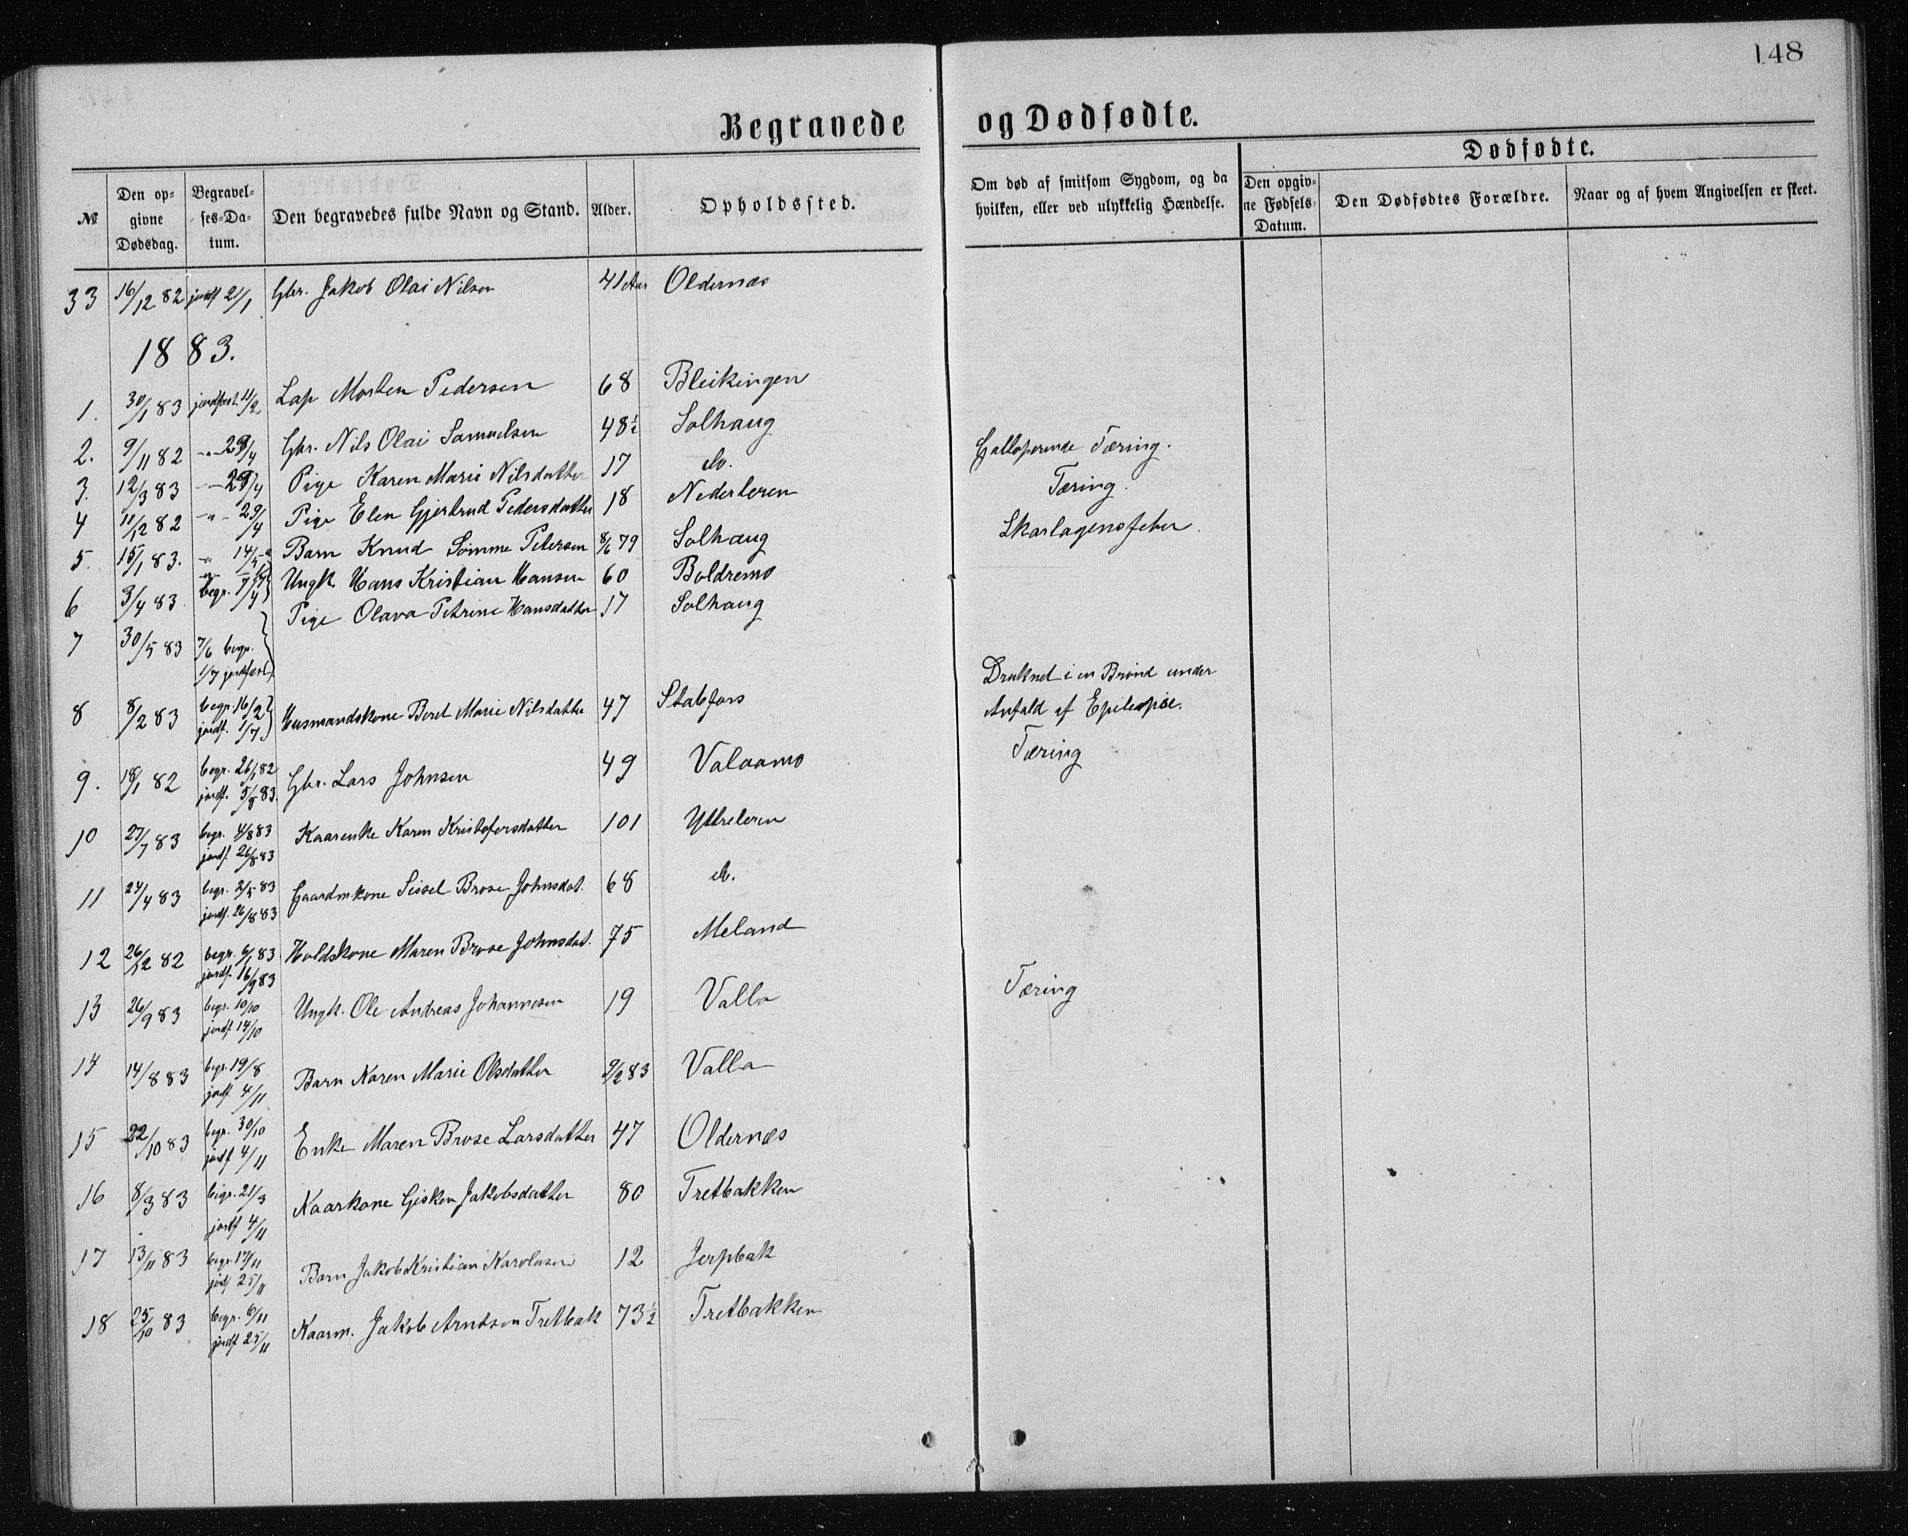 148
Begravede og Dødfødte.
Dødfødte.
№ Den opgivne Dødsdag. Begravelses-Datum. Den begravedes fulde Navn og Stand. Alder. Opholdssted. Om død af smitsom Sygdom, og da hvilken, eller ved ulykkelig Hændelse. Den opgivne Fødsels-Datum. Den Dødfødtes Forældre. Naar og af hvem Angivelsen er skeet.
33 16/12 82 jordf 2/1 Gbr. Jakob Olai Nilsen 41 Aar Oldernæs
1883.
1. 30/1 83 jordfæst 11/2 Lap Morten Pedersen 68 Bleikingen
2. 9/11 82 -"- 29/4 Gbr. Nils Olai Samuelsen 48½ Solhaug Galloperende Tæring.
3. 12/3 83 -"- 29/4 Pige Karen Marie Nilsdatter 17 do. Tæring.
4 11/12 82 -"- 29/4 Pige Elen Gjertrud Pedersdatter 18 Nederleren Skarlagensfeber.
5. 15/1 83. -"- 14/5 Barn Knud Sømme Petersen 8/6 79 Solhaug
6 3/4 83 begr. Ungk Hans Kristian Hansen 60 Boldremo
7 30/5 83 7/6 begr. Pige Olava Petrine Hansdatter 17 Solhaug
1/7 jordfæst
8 8/2 83 begr. 16/2 Husmandskone Beret Marie Nilsdatter 47 Stabfors Druknet i en Brønd under
jordf. 1/7 Anfald af Epilepsie.
9. 18/1 82 begr. 26/1 82 Gbr. Lars Johnsen 49 Valaamo Tæring
jordf. 5/8 83.
10 27/7 83 begr. 4/8 83 Kaarenke Karen Kristofersdatter 101 Ytreleren
jordf. 26/8 83
11 24/4 83 begr. 2/5 83 Gaardmkone Sissel Brose Johnsdat. 68 do.
jordf. 26/8 83
12 26/12 82 begr. 6/1 83 Holdskone Maren Brose Johnsdat. 75 Meland
jordf. 16/9 83
13 26/9 83 begr. 10/10 Ungk. Ole Andreas Johannesen 19 Valla Tæring
jordf 14/10
14 14/8 83 begr. 19/8 Barn Karen Marie Olsdatter 9/2 83 Valla
jordf 4/11
15 22/10 83 begr. 30/10 Enke Maren Brose Larsdatter 47 Oldernæs
jordf 4/11
16 8/3 83 begr. 21/3 Kaarkone Gisken Jakobsdatter 80 Tretbakken
jordf 4/11
17 13/11 83 begr. 17/11 Barn Jakob Kristian Karolusen 12 Jerpbak
jordf 25/11
18 25/10 83 begr. 6/11 Kaarm. Jakob Arntsen Tretbak 73½ Tretbakken
jordf 25/11